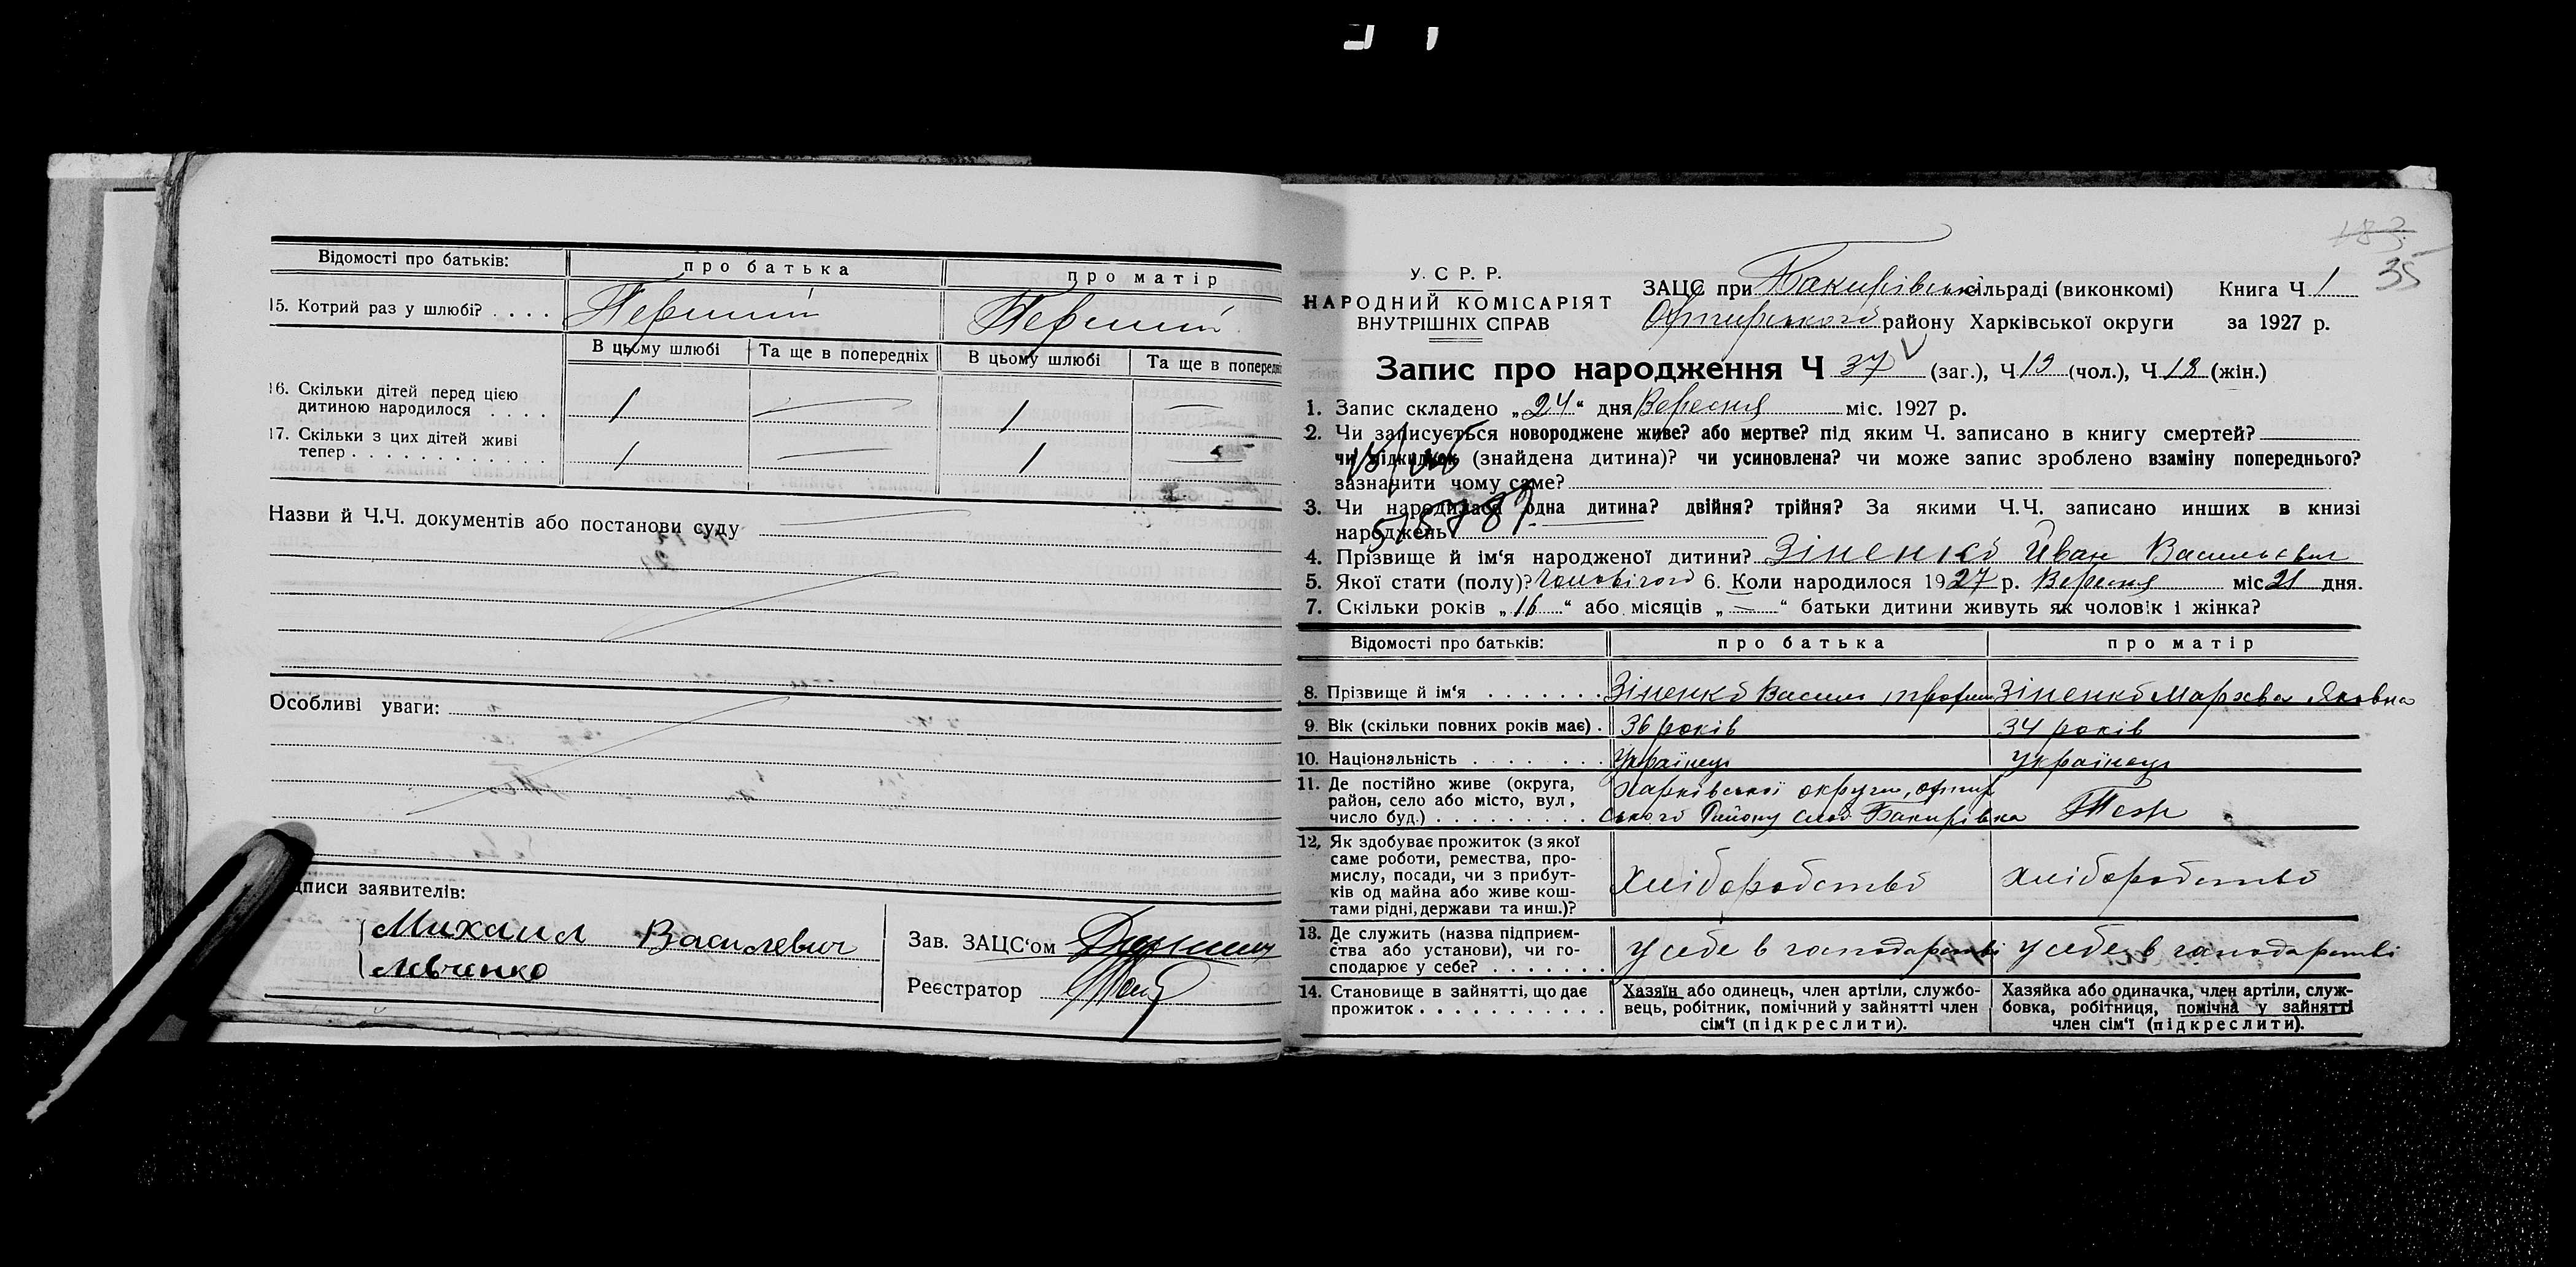 Відомості про батьків: про батька про матір
15. Котрий раз у шлюбі? . . . . Перший Перший
В цьому шлюбі Та ще в попередніх В цьому шлюбі Та ще в попередні
16. Скільки дітей перед цією
дитиною народилося . . . . 1 — 1 —
17. Скільки з цих дітей живі
тепер . . . . . . . . . . . 1 — 1 —
Назви й Ч.Ч. документів або постанови суду
Особливі уваги:
дписи заявителів:
Михаил Василевич
Левченко
Зав. ЗАЦС‘ом
Реєстратор
183
35
У. С Р. Р.
НАРОДНИЙ КОМІСАРІЯТ
ВНУТРІШНІХ СПРАВ
ЗАЦС при Бакирівській сільраді (виконкомі) Книга Ч 1
Охтирського району Харківської округи за 1927 р.
Запис про народження Ч 37 (заг.), Ч 19 (чол.), Ч 18 (жін.)
1. Запис складено „24“ дня Вересня міс. 1927 р.
2. Чи записується новороджене живе? або мертве? під яким Ч. записано в книгу смертей?
чи підкидьок (знайдена дитина)? чи усиновлена? чи може запис зроблено взаміну попереднього?
зазначити чому саме?
3. Чи народилася одна дитина? двійня? трійня? За якими Ч.Ч. записано инших в книзі
народжень
4. Прізвище й ім‘я народженої дитини? Зіненко Иван Васильевич
5. Якої стати (полу)? Чоловічого 6. Коли народилося 1927 р. Вересня міс 21 дня.
7. Скільки років „16“ або місяців „—“ батьки дитини живуть як чоловік і жінка?
Відомості про батьків: про батька про матір
8. Прізвище й ім‘я . . . . . . . Зіненко Василь Трофим Зіненко Мархва Яковна
9. Вік (скільки повних років має) . 36 років 34 років
10. Національність . . . . . . . Українець Українець
11. Де постійно живе (округа,
район, село або місто, вул,
число буд.) . . . . . . . . .
Харківської округи, Охтир
ського Району Слоб Бакирівка Теж
12, Як здобуває прожиток (з якої
саме роботи, ремества, про-
мислу, посади, чи з прибут-
ків од майна або живе кош-
тами рідні, держави та инш.)?
Хліборобство Хліборобство
13. Де служить (назва підприєм-
ства або установи), чи го-
сподарює у себе? . . . . . . .
у себе в господарстві у себе в господарстві
14. Становище в зайнятті, що дає
прожиток . . . . . . . . . . .
Хазяїн або одинець, член артіли, службо-
вець, робітник, помічний у зайнятті член
сім‘ї (підкреслити).
Хазяйка або одиначка, член артіли, служ-
бовка, робітниця, помічна у зайнятті
член сім‘ї (підкреслити).